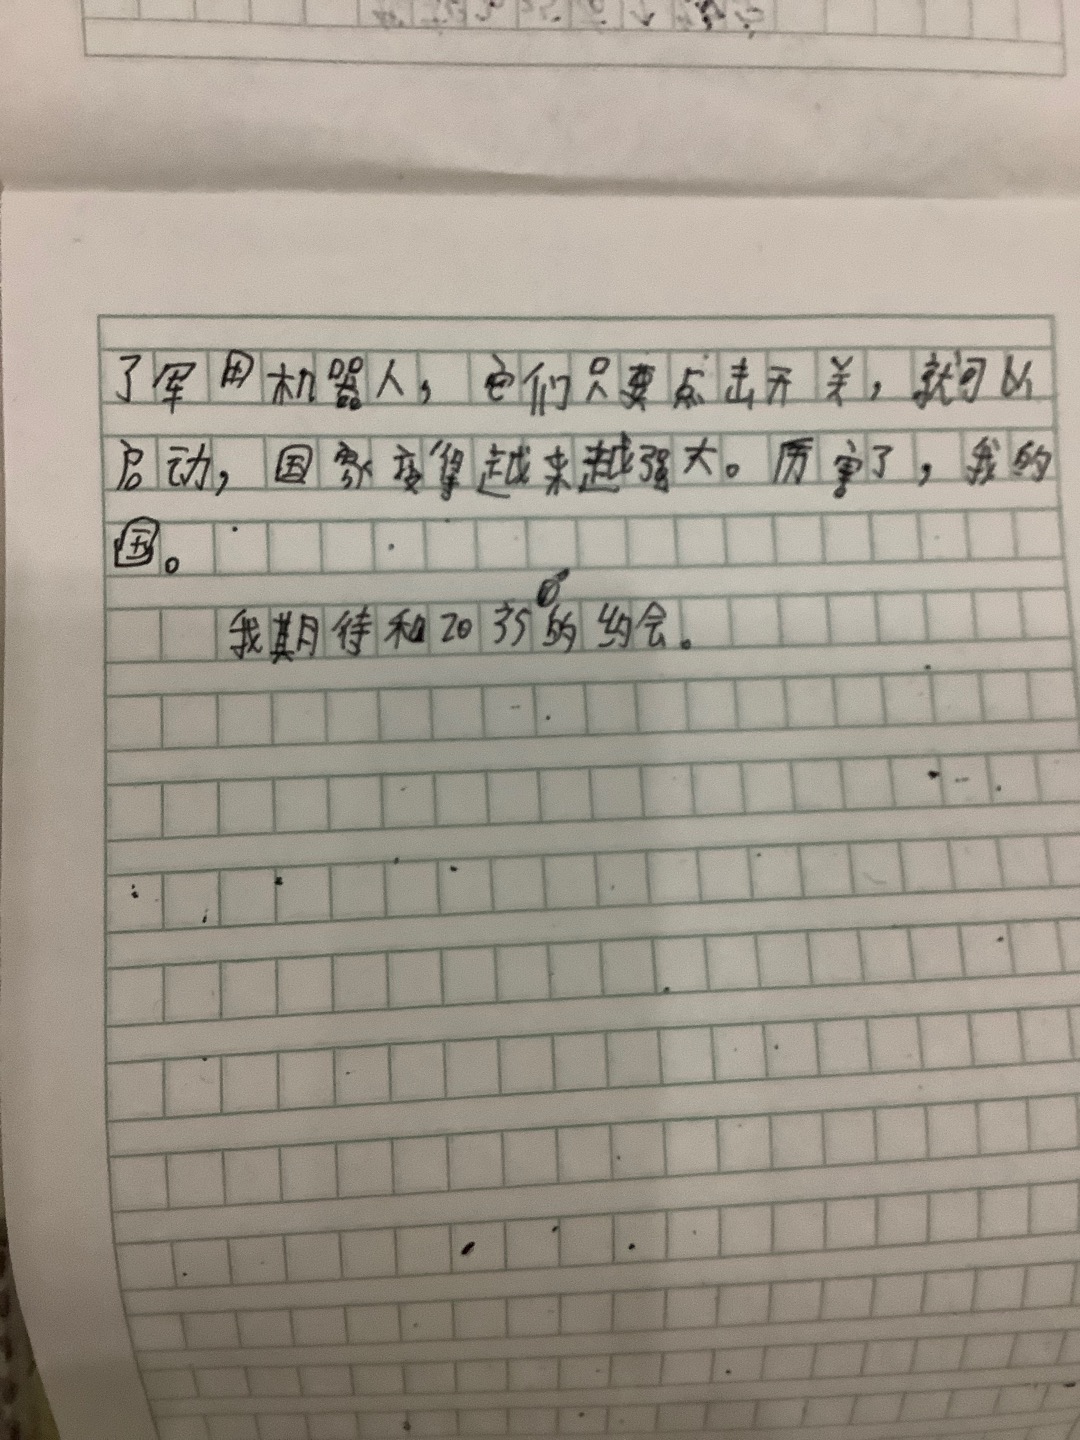 了军用机器人，它们只要点击开关，就可以
启动，国家变得越来越强大。厉害了，我的
国。
我期待和2035的约会。